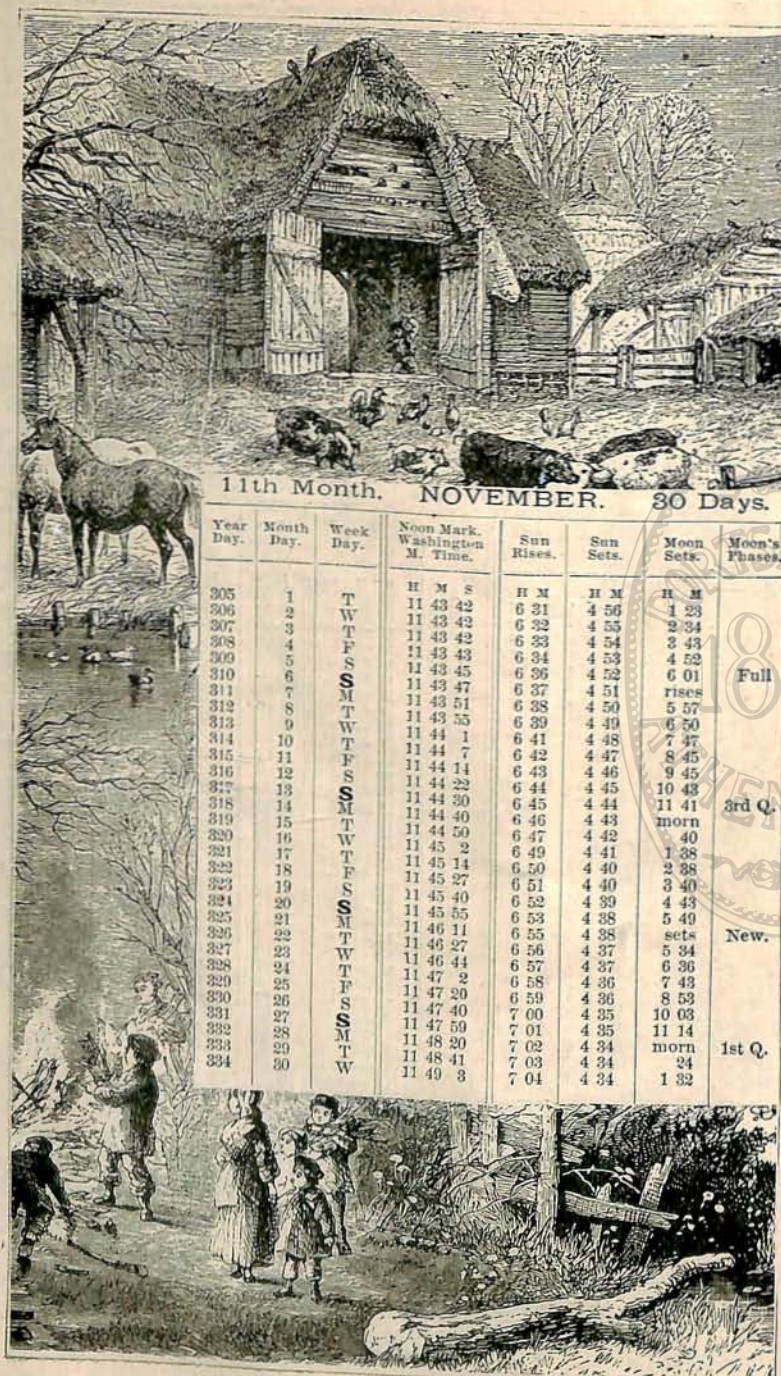 11th Month. NOVEMBER. 30 Days.
Year Day. Month Day. Week Day. Noon Mark. Washington M. Time. Sun Rises. Sun Sets. Moon Sets. Moon's Phases.
H M S H M H M H M
305 1 T 11 43 42 6 31 4 56 1 23
306 2 W 11 43 42 6 32 4 55 2 34
307 3 T 11 43 42 6 33 4 54 3 43
308 4 F 11 43 43 6 34 4 53 4 52
309 5 S 11 43 45 6 36 4 52 6 01 Full
310 6 S 11 43 47 6 37 4 51 rises
311 7 M 11 43 51 6 38 4 50 5 57
312 8 T 11 43 55 6 39 4 49 6 50
313 9 W 11 44 1 6 41 4 48 7 47
314 10 T 11 44 7 6 42 4 47 8 45
315 11 F 11 44 14 6 43 4 46 9 45
316 12 S 11 44 22 6 44 4 45 10 43
317 13 S 11 44 30 6 45 4 44 11 41 3rd Q.
318 14 M 11 44 40 6 46 4 43 morn
319 15 T 11 44 50 6 47 4 42 40
320 16 W 11 45 2 6 49 4 41 1 38
321 17 T 11 45 14 6 50 4 40 2 38
322 18 F 11 45 27 6 51 4 40 3 40
323 19 S 11 45 40 6 52 4 39 4 43
324 20 S 11 45 55 6 53 4 38 5 49
325 21 M 11 46 11 6 55 4 38 sets New.
326 22 T 11 46 27 6 56 4 37 5 34
327 23 W 11 46 44 6 57 4 37 6 36
328 24 T 11 47 2 6 58 4 36 7 43
329 25 F 11 47 20 6 59 4 36 8 53
330 26 S 11 47 40 7 00 4 35 10 03
331 27 S 11 47 59 7 01 4 35 11 14
332 28 M 11 48 20 7 02 4 34 morn 1st Q.
333 29 T 11 48 41 7 03 4 34 24
334 30 W 11 49 3 7 04 4 34 1 32